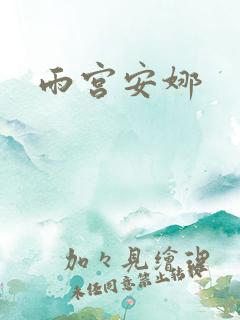 雨宫安娜
加々見繪里
未经同意禁止转载